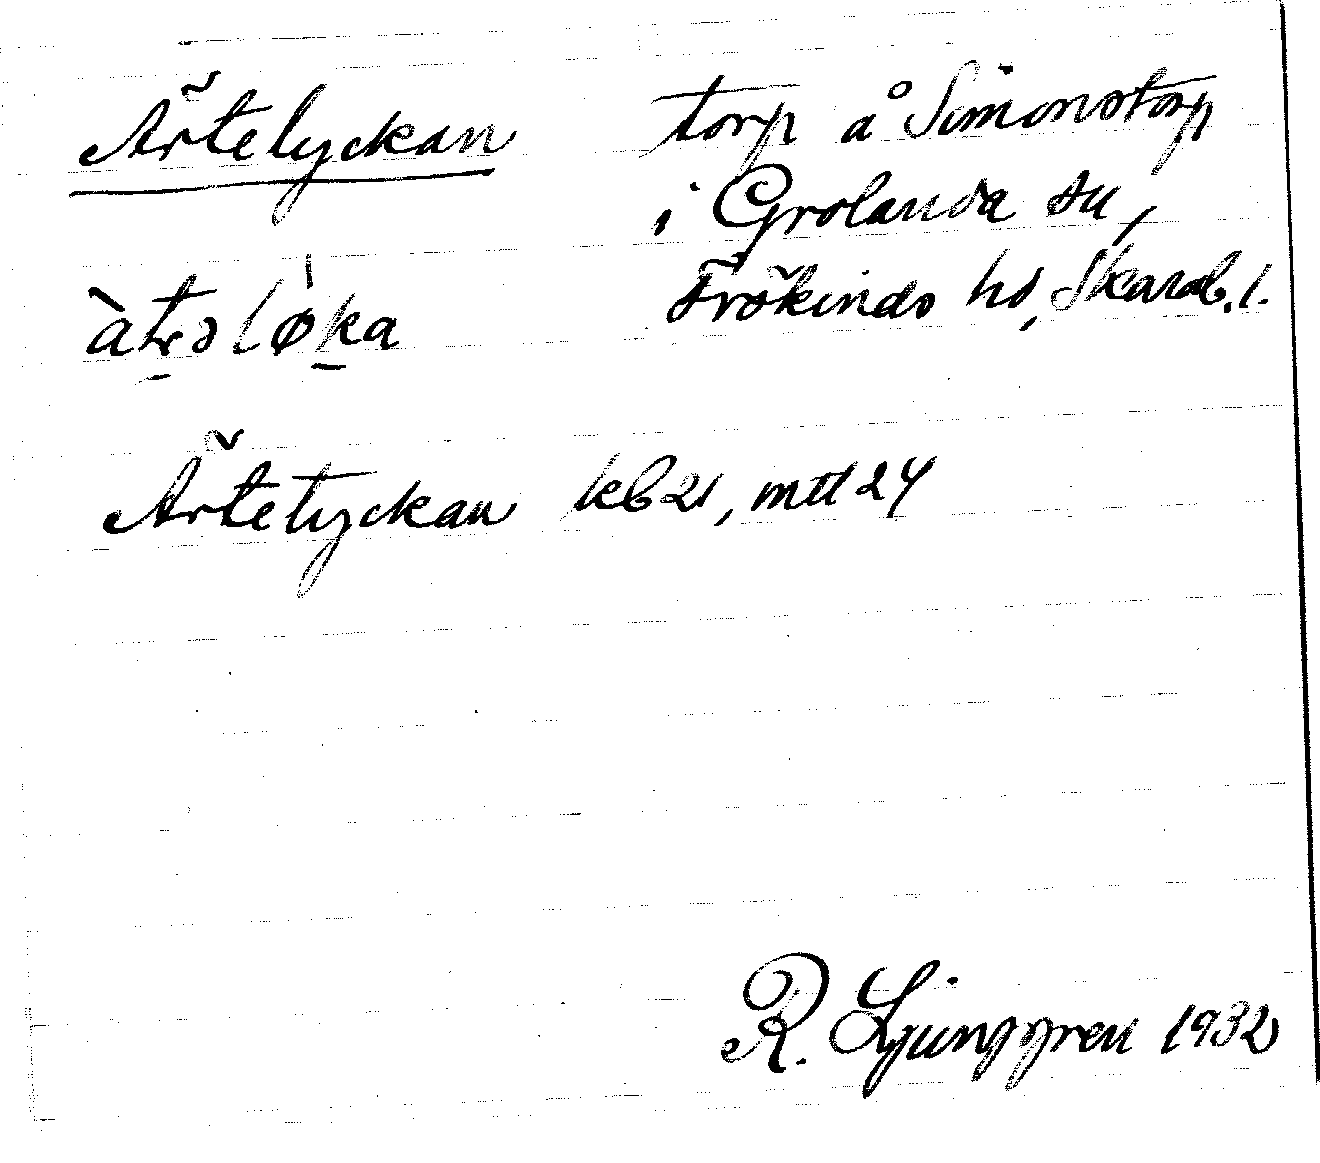 Ärtelyckan torp å Simonstorp
i Grolanda sn,
Frökinds hd, Skarab. l.
àtrəløka
Ärtetyckan kb 21, mtl 24
R. Ljunggren 1932